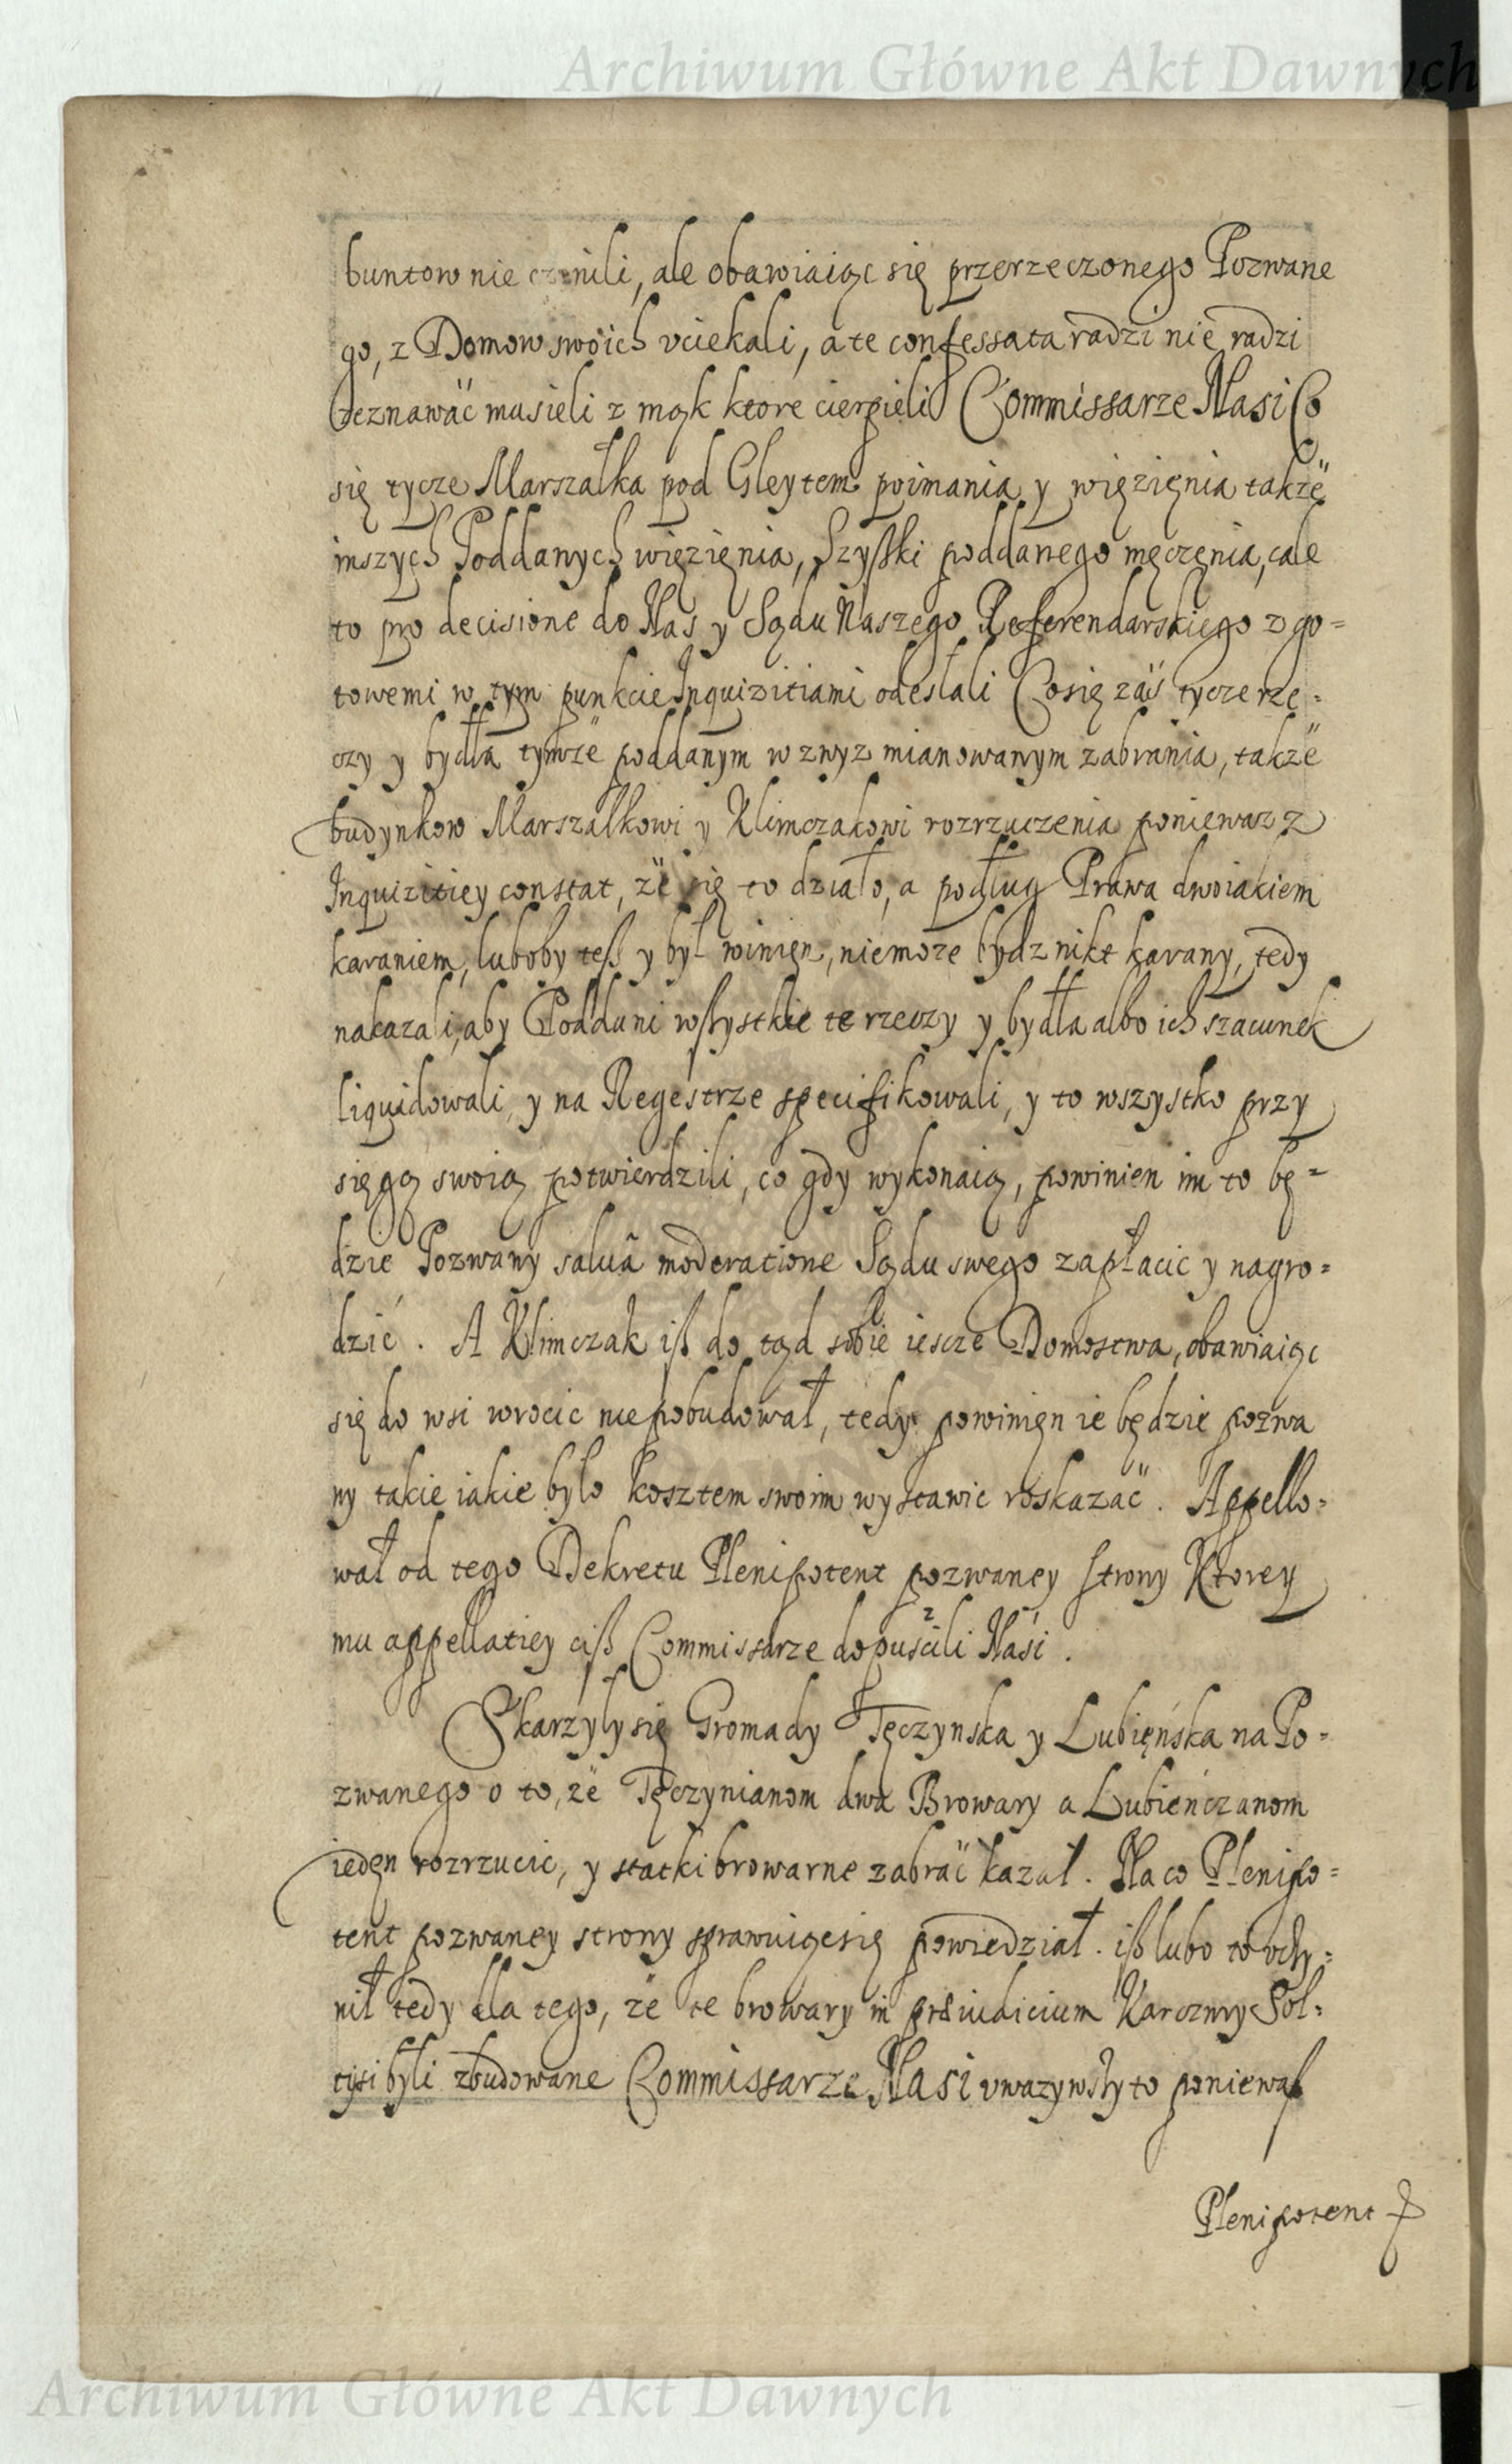 Archiwum Główne Akt Dawnych
buntow nie czynili, ale obawiaiąc się przerzeczonego Pozwane
go, z Domow swoich vciekali, a te confessata radzi nie radzi
zeznawać musieli z mąk ktore cierpieli Commissarze Nasi Co
się tycze Marszałka pod Gleytem poimania y więzięnia takze
inszych Poddanych więzięnia, Szyszki poddanego męczęnia, cale
to pro decisione do Nas y Sądu Naszego Referendarskiego z go=
towemi w tym punkcie Inquizitiami odesłali Co się zaś tycze rze=
czy y bydła tymze poddanym wzwyz mianowanym zabrania, takze
budynkow Marszałkowi y Klimczakowi rozrzuczenia poniewaz z
Inquizitiey constat, ze się to działo, a podług Prawa dwoiakiem
karaniem, luboby tesz y był winięn, niemoze bydz nikt karany, tedy
nakazali, aby Poddani wszystkie te rzeczy y bydła albo ich szacunek
liquidowali, y na Regestrze specifikowali, y to wszystko przy
sięgą swoią potwierdzili, co gdy wykonaią, powinien im to bę=
dzie Pozwany saluâ moderatione Sądu swego zapłacic y nagro=
dzić. A Klimczak isz do tąd sobie iescze Domostwa, obawiaiąc
się do wsi wrocic nie pobudował, tedy powinięn ie będzie pozwa
ny takie iakie było kosztem swoim wystawic roskazać. Appello=
wał od tego Dekretu Plenipotent pozwaney strony Ktorey
mu appellatiey cisz Commissarze dopuścili Naśi.
Skarzyły się Gromady Tęczynska y Lubięńska na Po=
zwanego o to, ze Tęczynianom dwa Browary a Lubieńczanom
iedęn rozrzucic, y statki browarne zabrać kazał. Na co Plenipo=
tent pozwaney strony sprawuiąc się powiedział. isz lubo to vczy=
nił tedy dla tego, ze te browary in præiudicium Karczmy Soł=
tysi byli zbudowane Commissarze Nasi vwazywszy to poniewasz
Plenipotent
Archiwum Główne Akt Dawnych